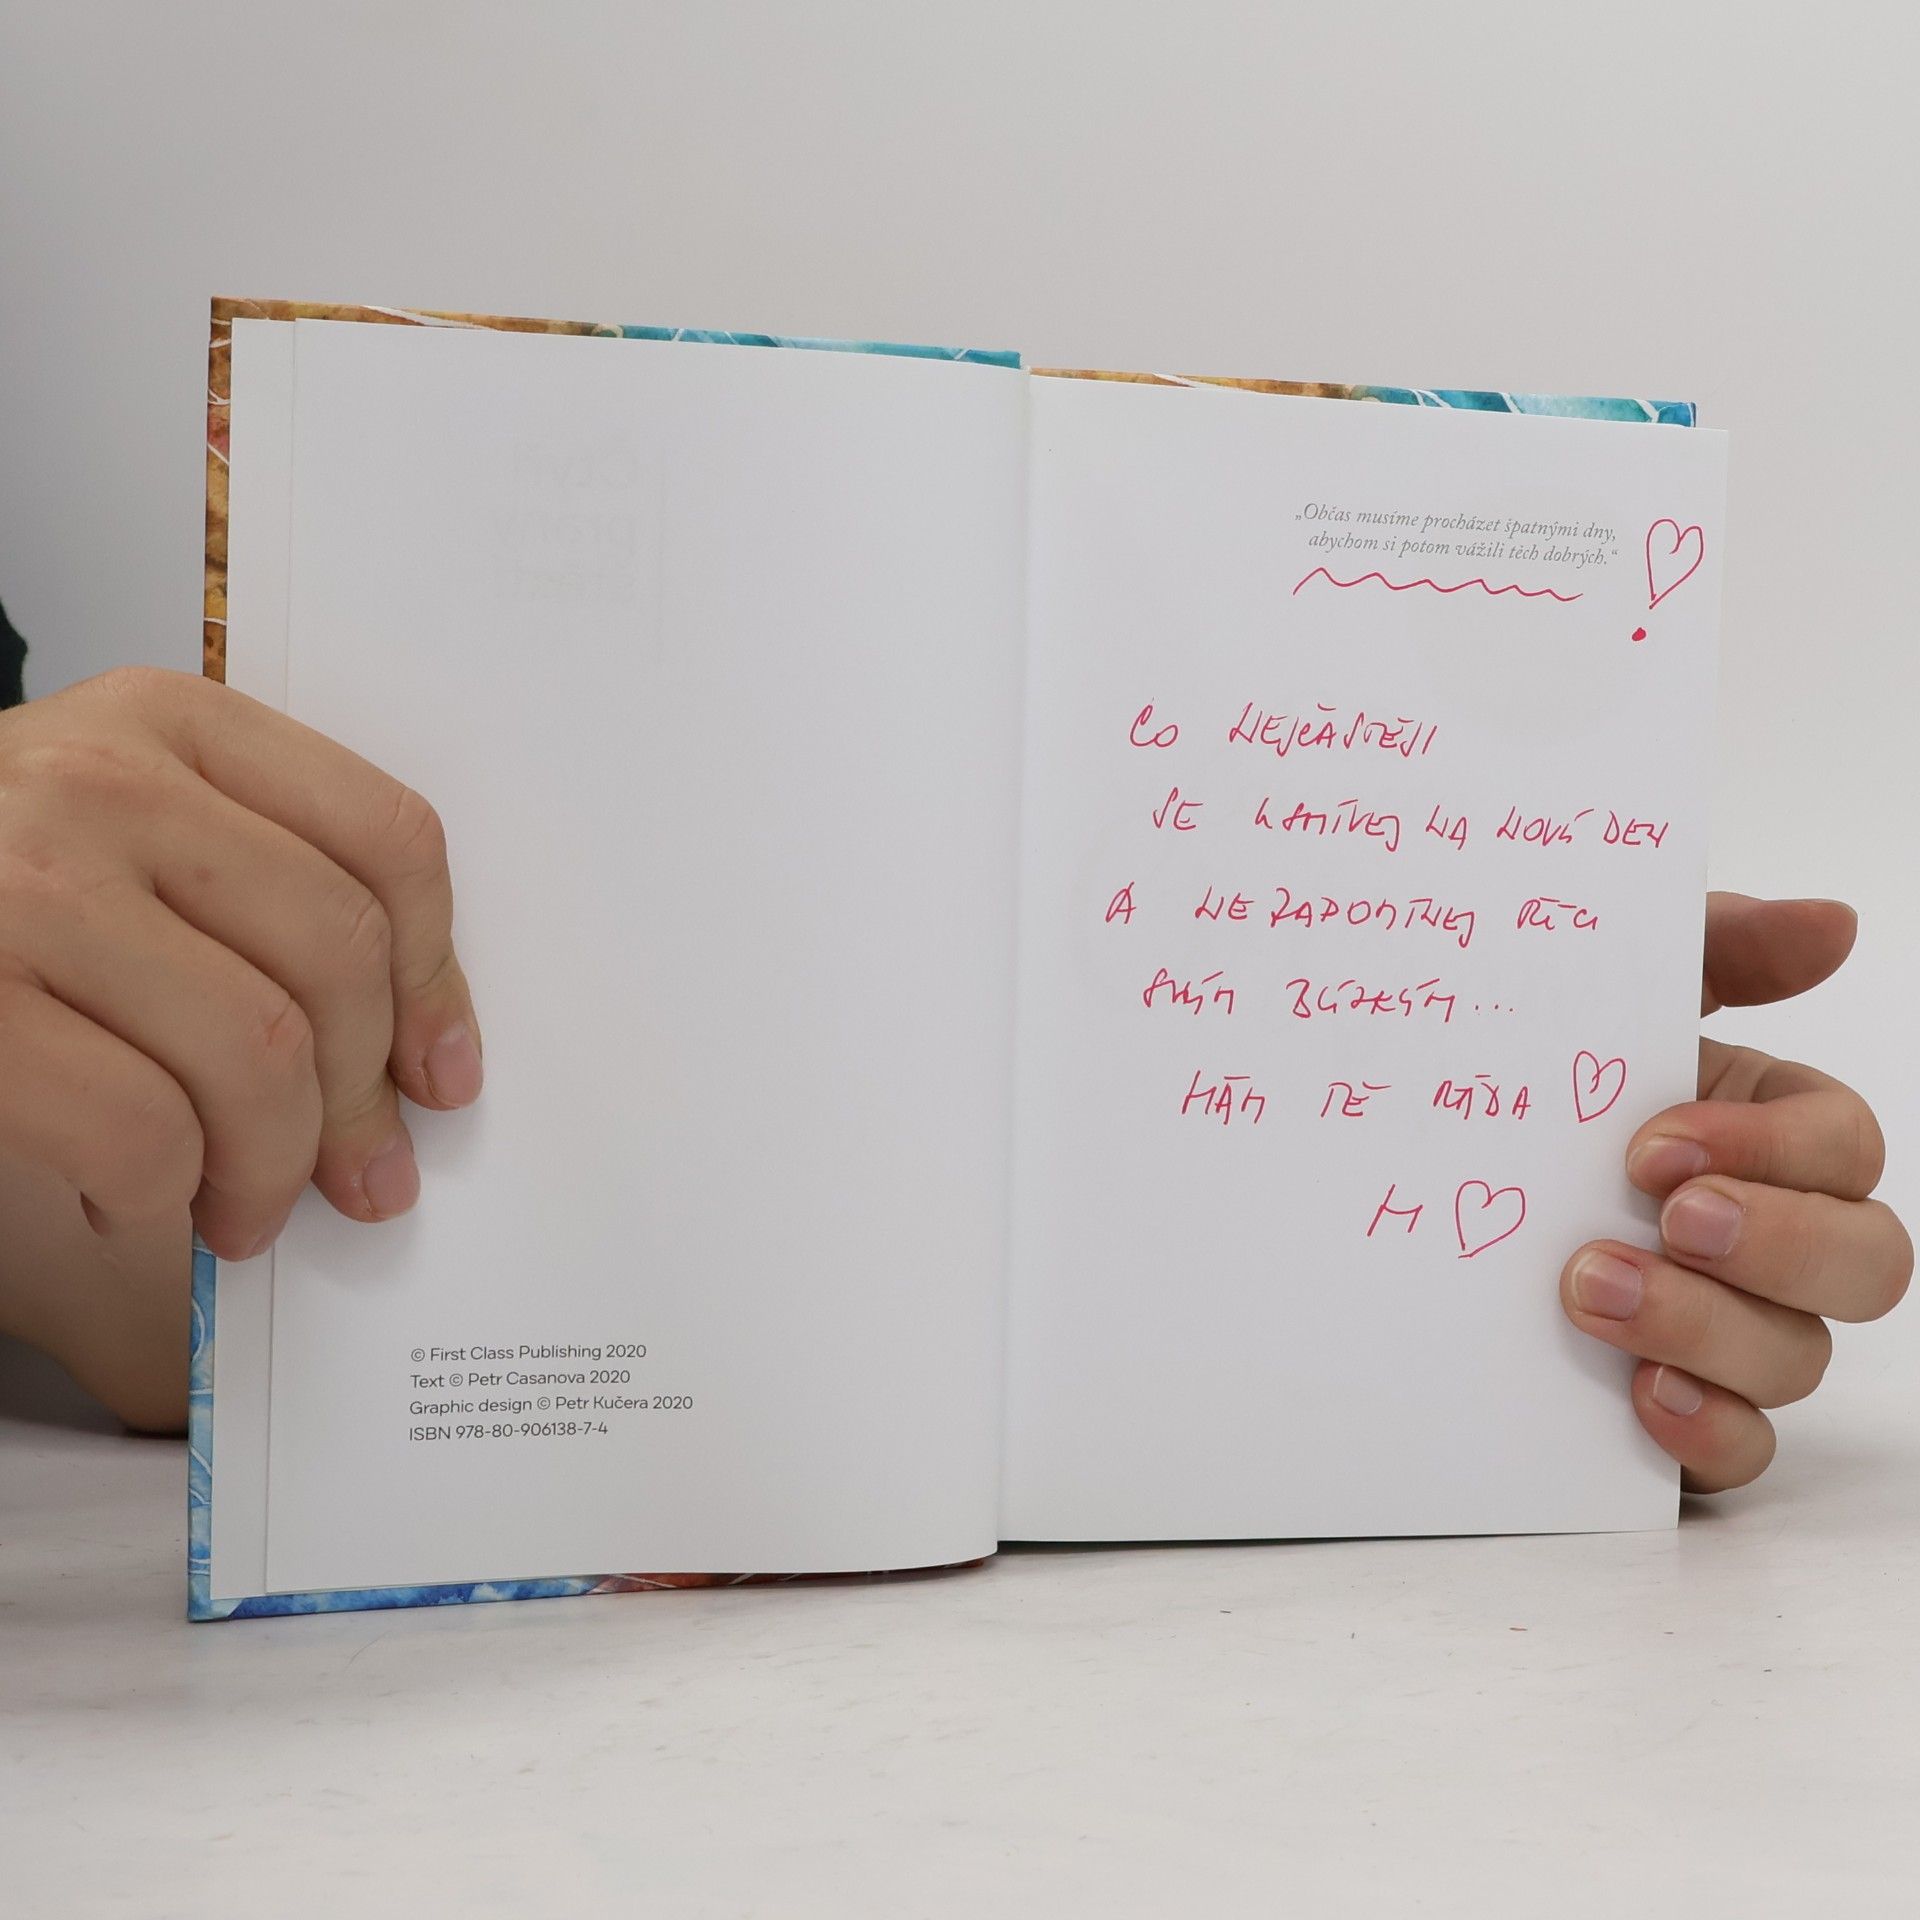 © First Class Publishing 2020
Text © Petr Casanova 2020
Graphic design © Petr Kučera 2020
ISBN 978-80-906138-7-4
„Občas musíme procházet špatnými dny,
abychom si potom vážili těch dobrých.“
CO NEJČASTĚJI
SE USMÍVEJ NA NOVÝ DEN
A NEZAPOMÍNEJ ŘÍCI
SVÝM BLÍZKÝM...
MÁM TĚ RÁDA
M